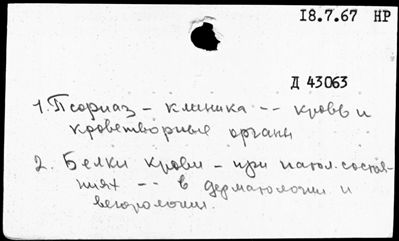 18.7.67 НР
Д 43063
1. Псориаз - клиника -- кровь и
кроветворные органы
2. Белки крови - при патол. состоя-
ниях -- в дерматологии и
венрологии.